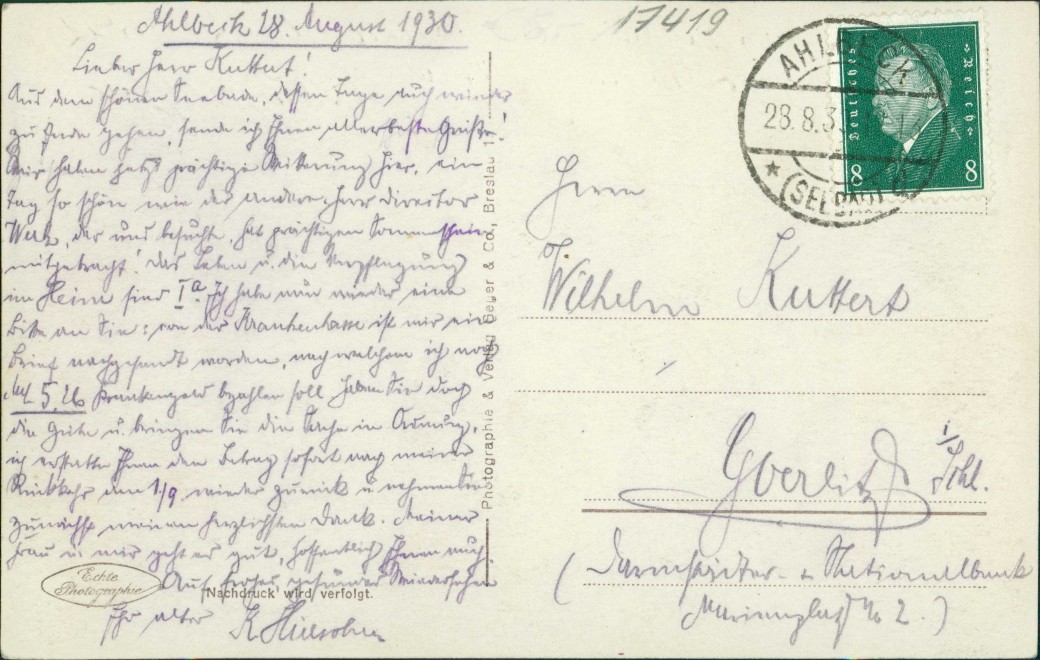 Ahlbeck 28. August 1930.
17419
Lieber Herr Kuttert!
Aus dem schönen Seebade, dessen Tage auch wieder
zu Ende gehen, sende ich Ihnen allerbeste Grüße!
Wir haben jetzt prächtige Witterung hier, ein
Tag so schön wie der andere. Herr Director
der uns besuchte, hat prächtigen Sonnenschein
mitgebracht! Das Leben u. die Verpflegung
im Heim sind Iª. Ich habe nun wieder eine
Bitte an Sie: von der Krankenkasse ist mir ein
Brief nachgesandt worden, nach welchem ich noch
M 5,26 Krankengeld bezahlen soll. Haben Sie doch
die Güte u. bringen Sie die Sache in Ordnung,
ich erstatte Ihnen den Betrag sofort nach meiner
Rückkehr am 1/9. wieder zurück u. nehmen Sie
zunächst meinen herzlichsten Dank. Meiner
Frau u. mir geht es gut, hoffentlich Ihnen auch.
Auf frohes, gesundes Wiedersehen
Ihr alter
Echte
Photographie
Nachdruck wird verfolgt.
Photographie & Verlag Beyer & Co., Breslau 1
AHLBECK
28.8.3
(SEEBAD)
Deutsches Reich
8 8
Herrn
Wilhelm Kuttert
Goerlitz i/Schl.
(Darmstädter- u. Nationalbank
Marienplatz No 2.)